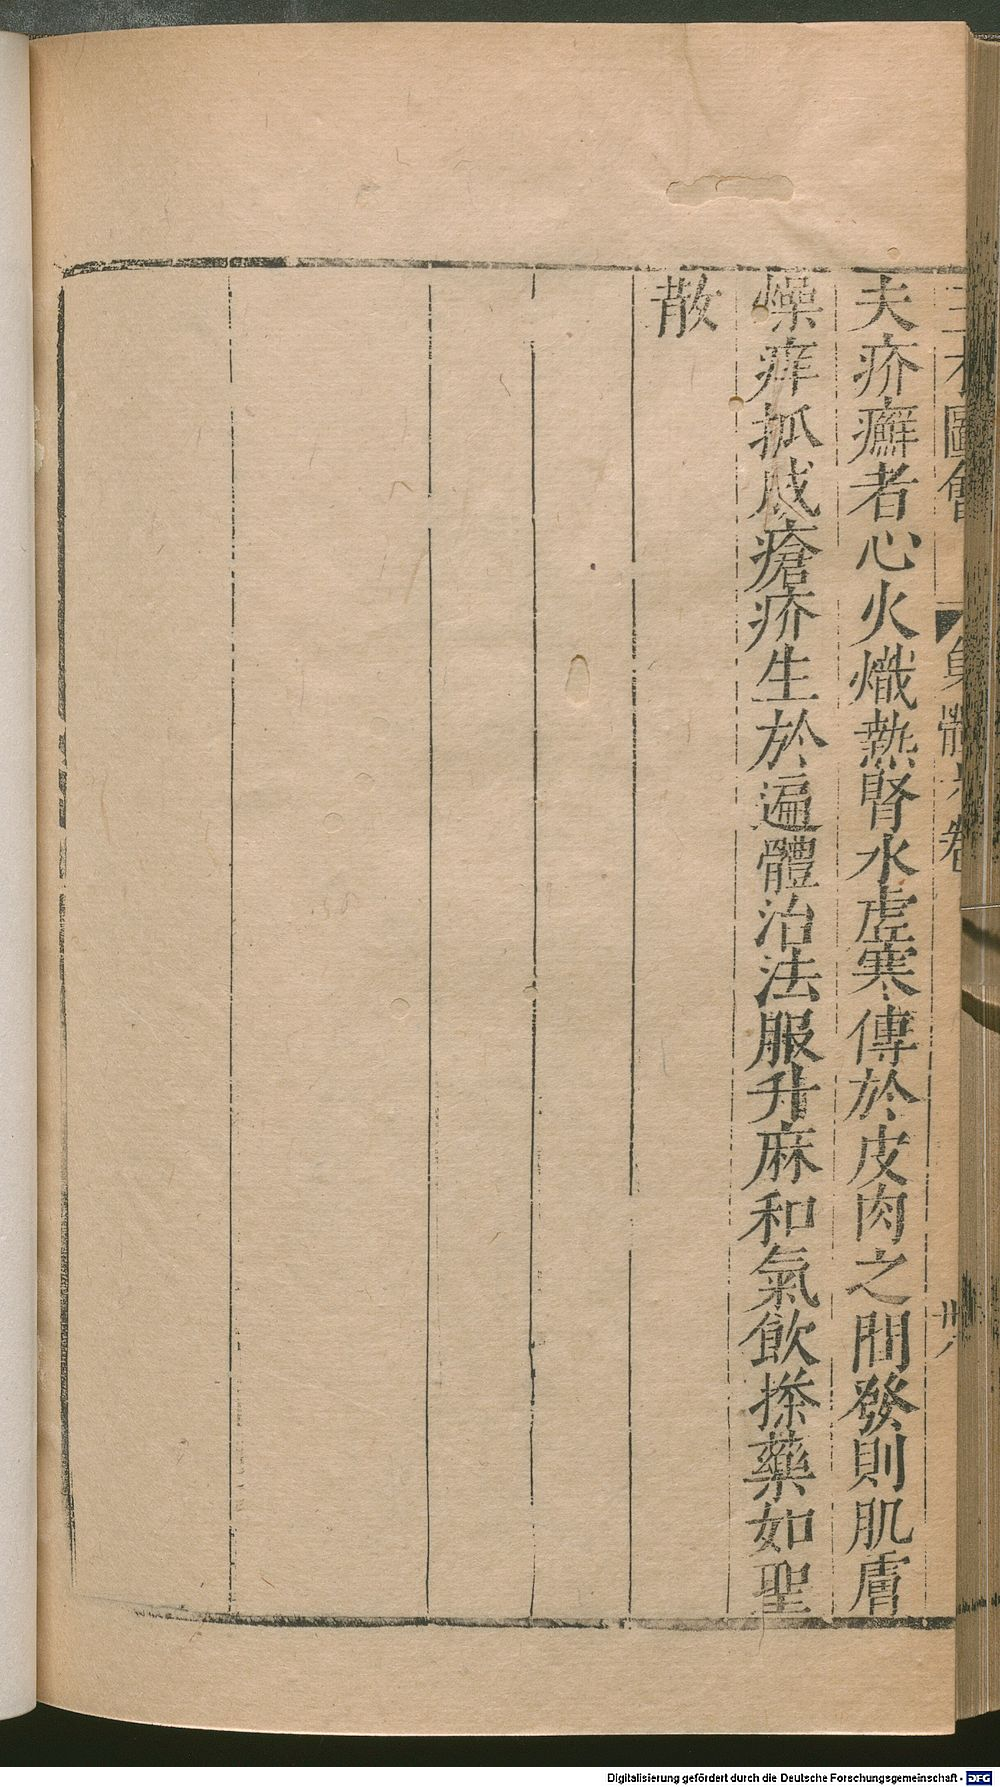 三才圖會 身體六卷 卅八
夫疥癬者心火熾熱腎水虛寒傳於皮肉之間發則肌膚
燥痒抓成瘡疥生於遍體治法服升麻和氣飲搽藥如聖
散
Digitalisierung gefördert durch die Deutsche Forschungsgemeinschaft - DFG